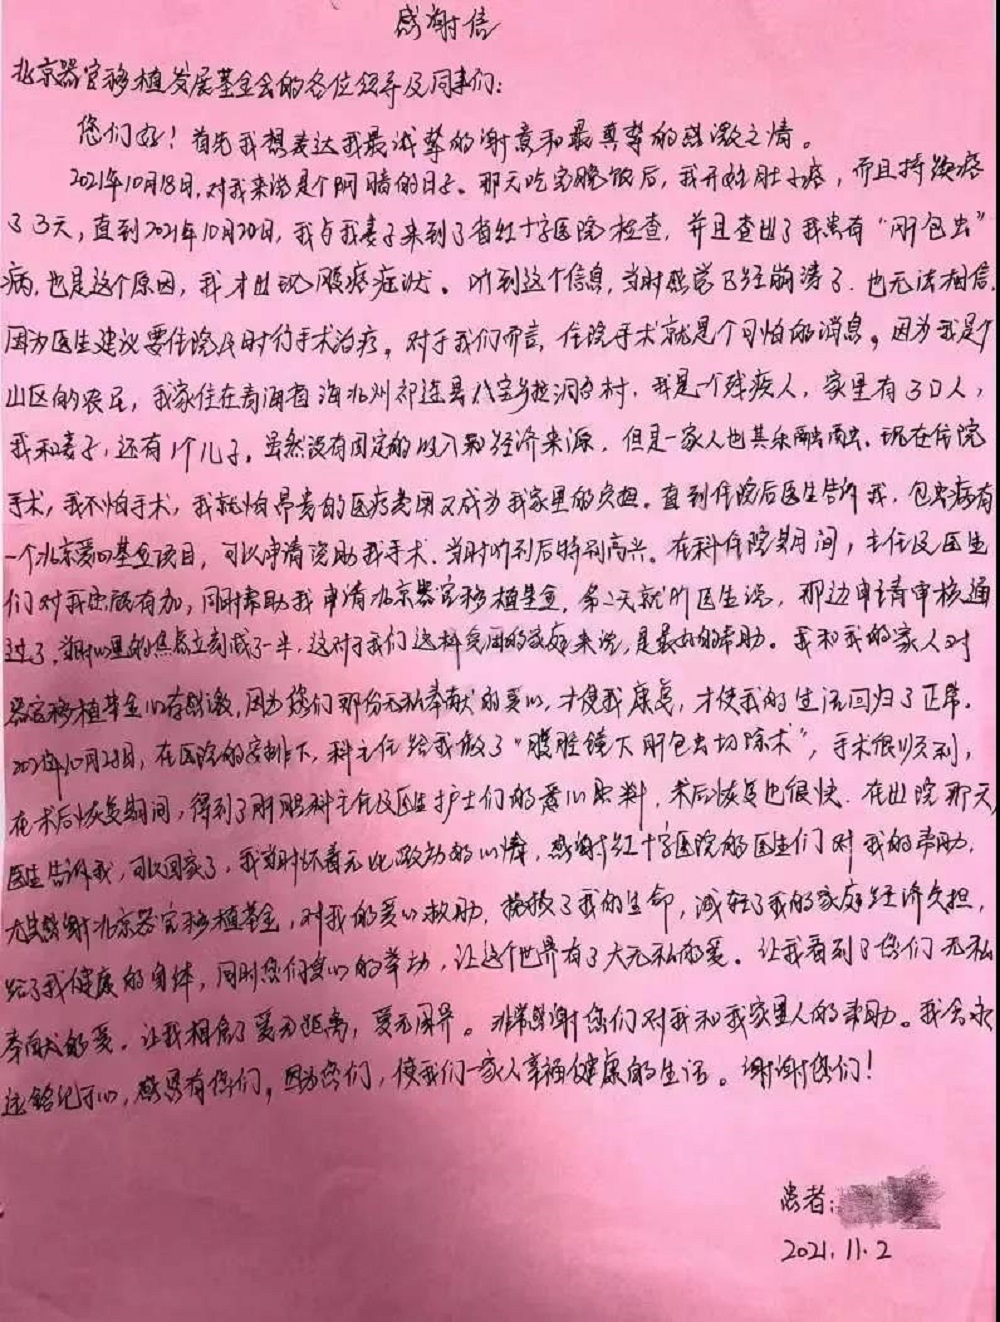 感谢信
北京器官移植发展基金会的各位领导及同事们：
您们好！首先我想表达我最诚挚的谢意和最真挚的感激之情。
2021年10月18日，对我来说是个阴暗的日子。那天吃完晚饭后，我开始肚子疼，而且持续疼
了3天，直到2021年10月20日，我与我妻子来到了省红十字医院检查，并且查出了我患有“肝包虫”
病，也是这个原因，我才出现腹疼症状。听到这个信息，当时感觉已经崩溃了．也无法相信．
因为医生建议要住院及时行手术治疗。对于我们而言，住院手术就是个可怕的消息。因为我是个
山区的农民，我家住在青海省海北州祁连县八宝乡拉洞台村，我是一个残疾人，家里有3口人，
我和妻子，还有1个儿子。虽然没有固定的收入和经济来源，但是一家人也其乐融融．现在住院
手术，我不怕手术，我就怕昂贵的医疗费用又成为我家里的负担。直到住院后医生告诉我，包虫病有
一个北京爱心基金项目，可以申请资助我手术．当时听到后特别高兴。在科住院期间，主任及医生
们对我照顾有加，同时帮助我申请北京器官移植基金，第二天就听医生说，那边申请审核通
过了．当时心里的焦虑立刻减了一半，这对于我们这种贫困的家庭来说，是最好的帮助。我和我的家人对
器官移植基金心存感激，因为您们那份无私奉献的爱心，才使我康复，才使我的生活回归了正常。
2021年10月23日，在医院的安排下，科主任给我做了“腹腔镜下肝包虫切除术”，手术很顺利，
在术后恢复期间，得到了肝胆科主任及医生护士们的爱心照料，术后恢复也很快．在出院那天，
医生告诉我，可以回家了，我当时怀着无比激动的心情，感谢红十字医院的医生们对我的帮助，
尤其感谢北京器官移植基金，对我的爱心救助，挽救了我的生命，减轻了我的家庭经济负担，
给了我健康的身体，同时您们爱心的举动，让这个世界有了大无私的爱。让我看到了您们无私
奉献的爱．让我相信了爱无距离，爱无国界。非常感谢您们对我和我家里人的帮助。我会永
远铭记于心，感恩有您们，因为您们，使我们一家人幸福健康的生活。谢谢您们！
患者：
2021.11.2